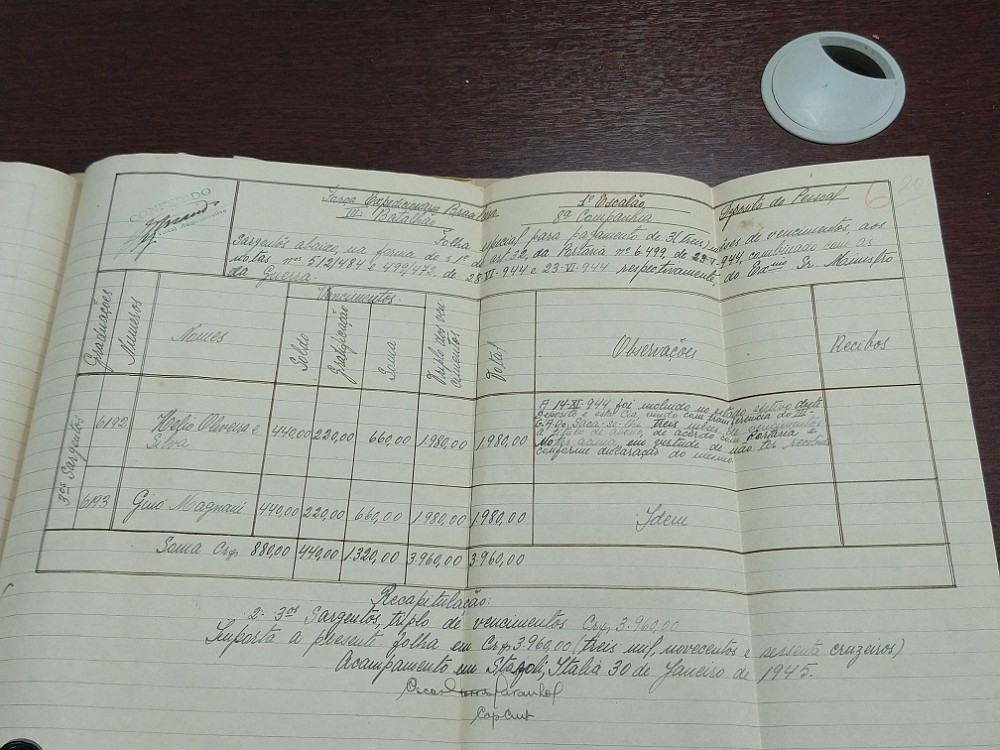 CONFERIDO
Força Expedicionaria 1º Escalão Deposito de Pessoal
III Batalhão 8ª Companhia
Folha especial para pagamento de 3 (tres) mêses de vencimentos, aos
Sargentos abaixo na forma do § 1º do art. 32, da Portaria nº 6.499, de 944, combinado com as
notas nºs 512/484 e 479/472, de 28-VI-944 e 23-VI-944 respectivamente, do Exmo Sr. Ministro
da Guerra.
Graduações Numeros Nomes Vencimentos. Soldo Gratificação Soma Triplo dos vencimentos Total Observações Recibos
3ºs Sargentos
6192 Helio Oliveira e Silva 440,00 220,00 660,00 1980,00 1.980,00
A 14-XI-944 foi incluido no estado efetivo deste
Deposito e esta Cia, vindo com transferencia do III-
6º R.I. Saca-se-lhe tres mêses de vencimentos
a titulo de abono, de acordo com Portaria e
Notas acima, em virtude de não ter recebido
conforme declaração do mesmo.
6193 Gino Magnani 440,00 220,00 660,00 1980,00 1.980,00 Idem
Soma Cr$ 880,00 440,00 1.320,00 3.960,00 3.960,00
Recapitulação:
2- 3ºs Sargentos, triplo de vencimentos Cr$ 3.960,00
Importa a presente folha em Cr$ 3.960,00 (treis mil, novecentos e sessenta cruzeiros)
Acampamento em Stapoli, Italia 30 de Janeiro de 1945.
Paranhos
Cap Cmt
6